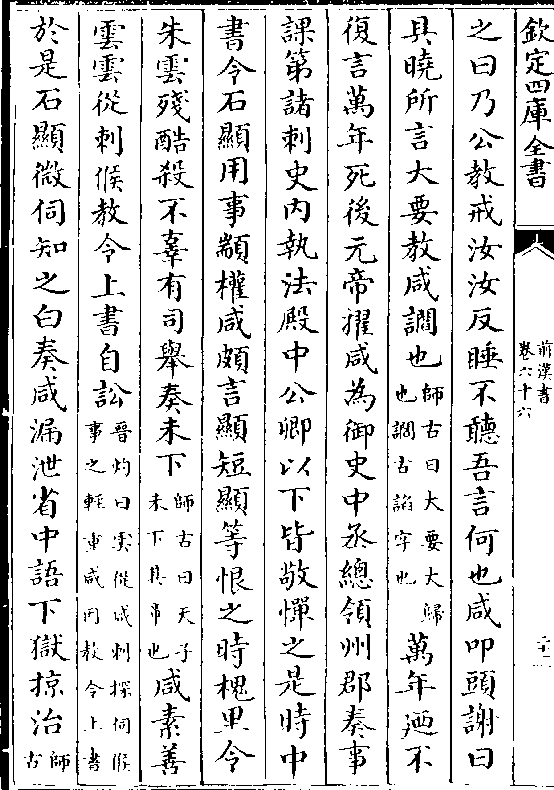 欽定四庫全書
前漢書
卷六十六
之曰乃公教戒汝汝反睡不聽吾言何也咸叩頭謝曰
具曉所言大要教咸讇也師古曰大要大歸也讇古諂字也萬年廼不
復言萬年死後元帝擢咸為御史中丞總領州郡奏事
課第諸刺史内執法殿中公卿以下皆敬憚之是時中
書令石顯用事顓權咸頗言顯短顯等恨之時槐里令
朱雲殘酷殺不辜有司舉奏未下師古曰天子未下其章也咸素善
雲雲從刺候教令上書自訟晉灼曰雲從咸刺探伺候事之輕重咸因教令上書
於是石顯微伺知之白奏咸漏泄省中語下獄掠治師古